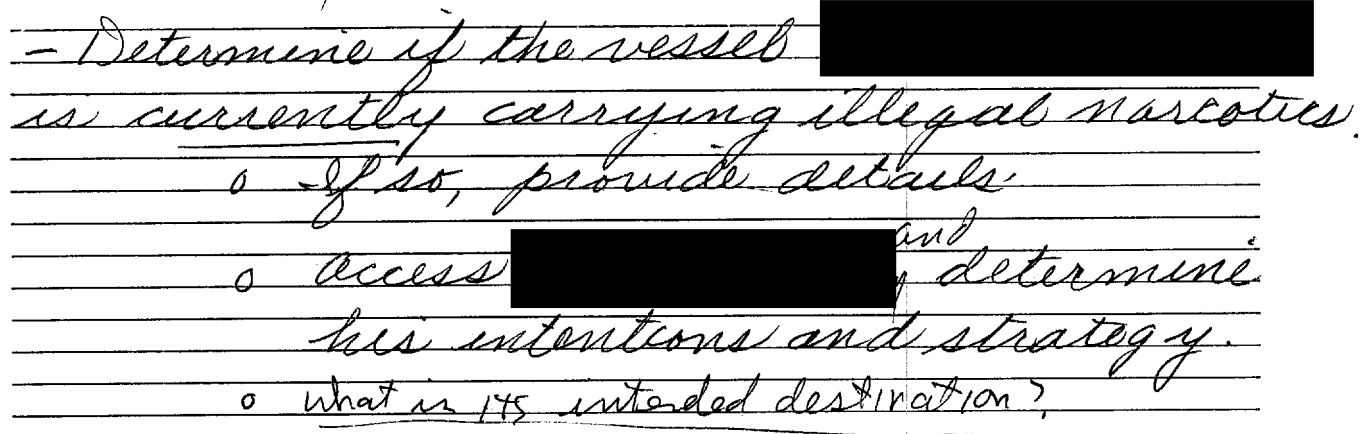 - Determine if the vessel
is currently carrying illegal narcotics.
o If so, provide details.
o Access and determine
his intentions and strategy.
o What is its intended destination?